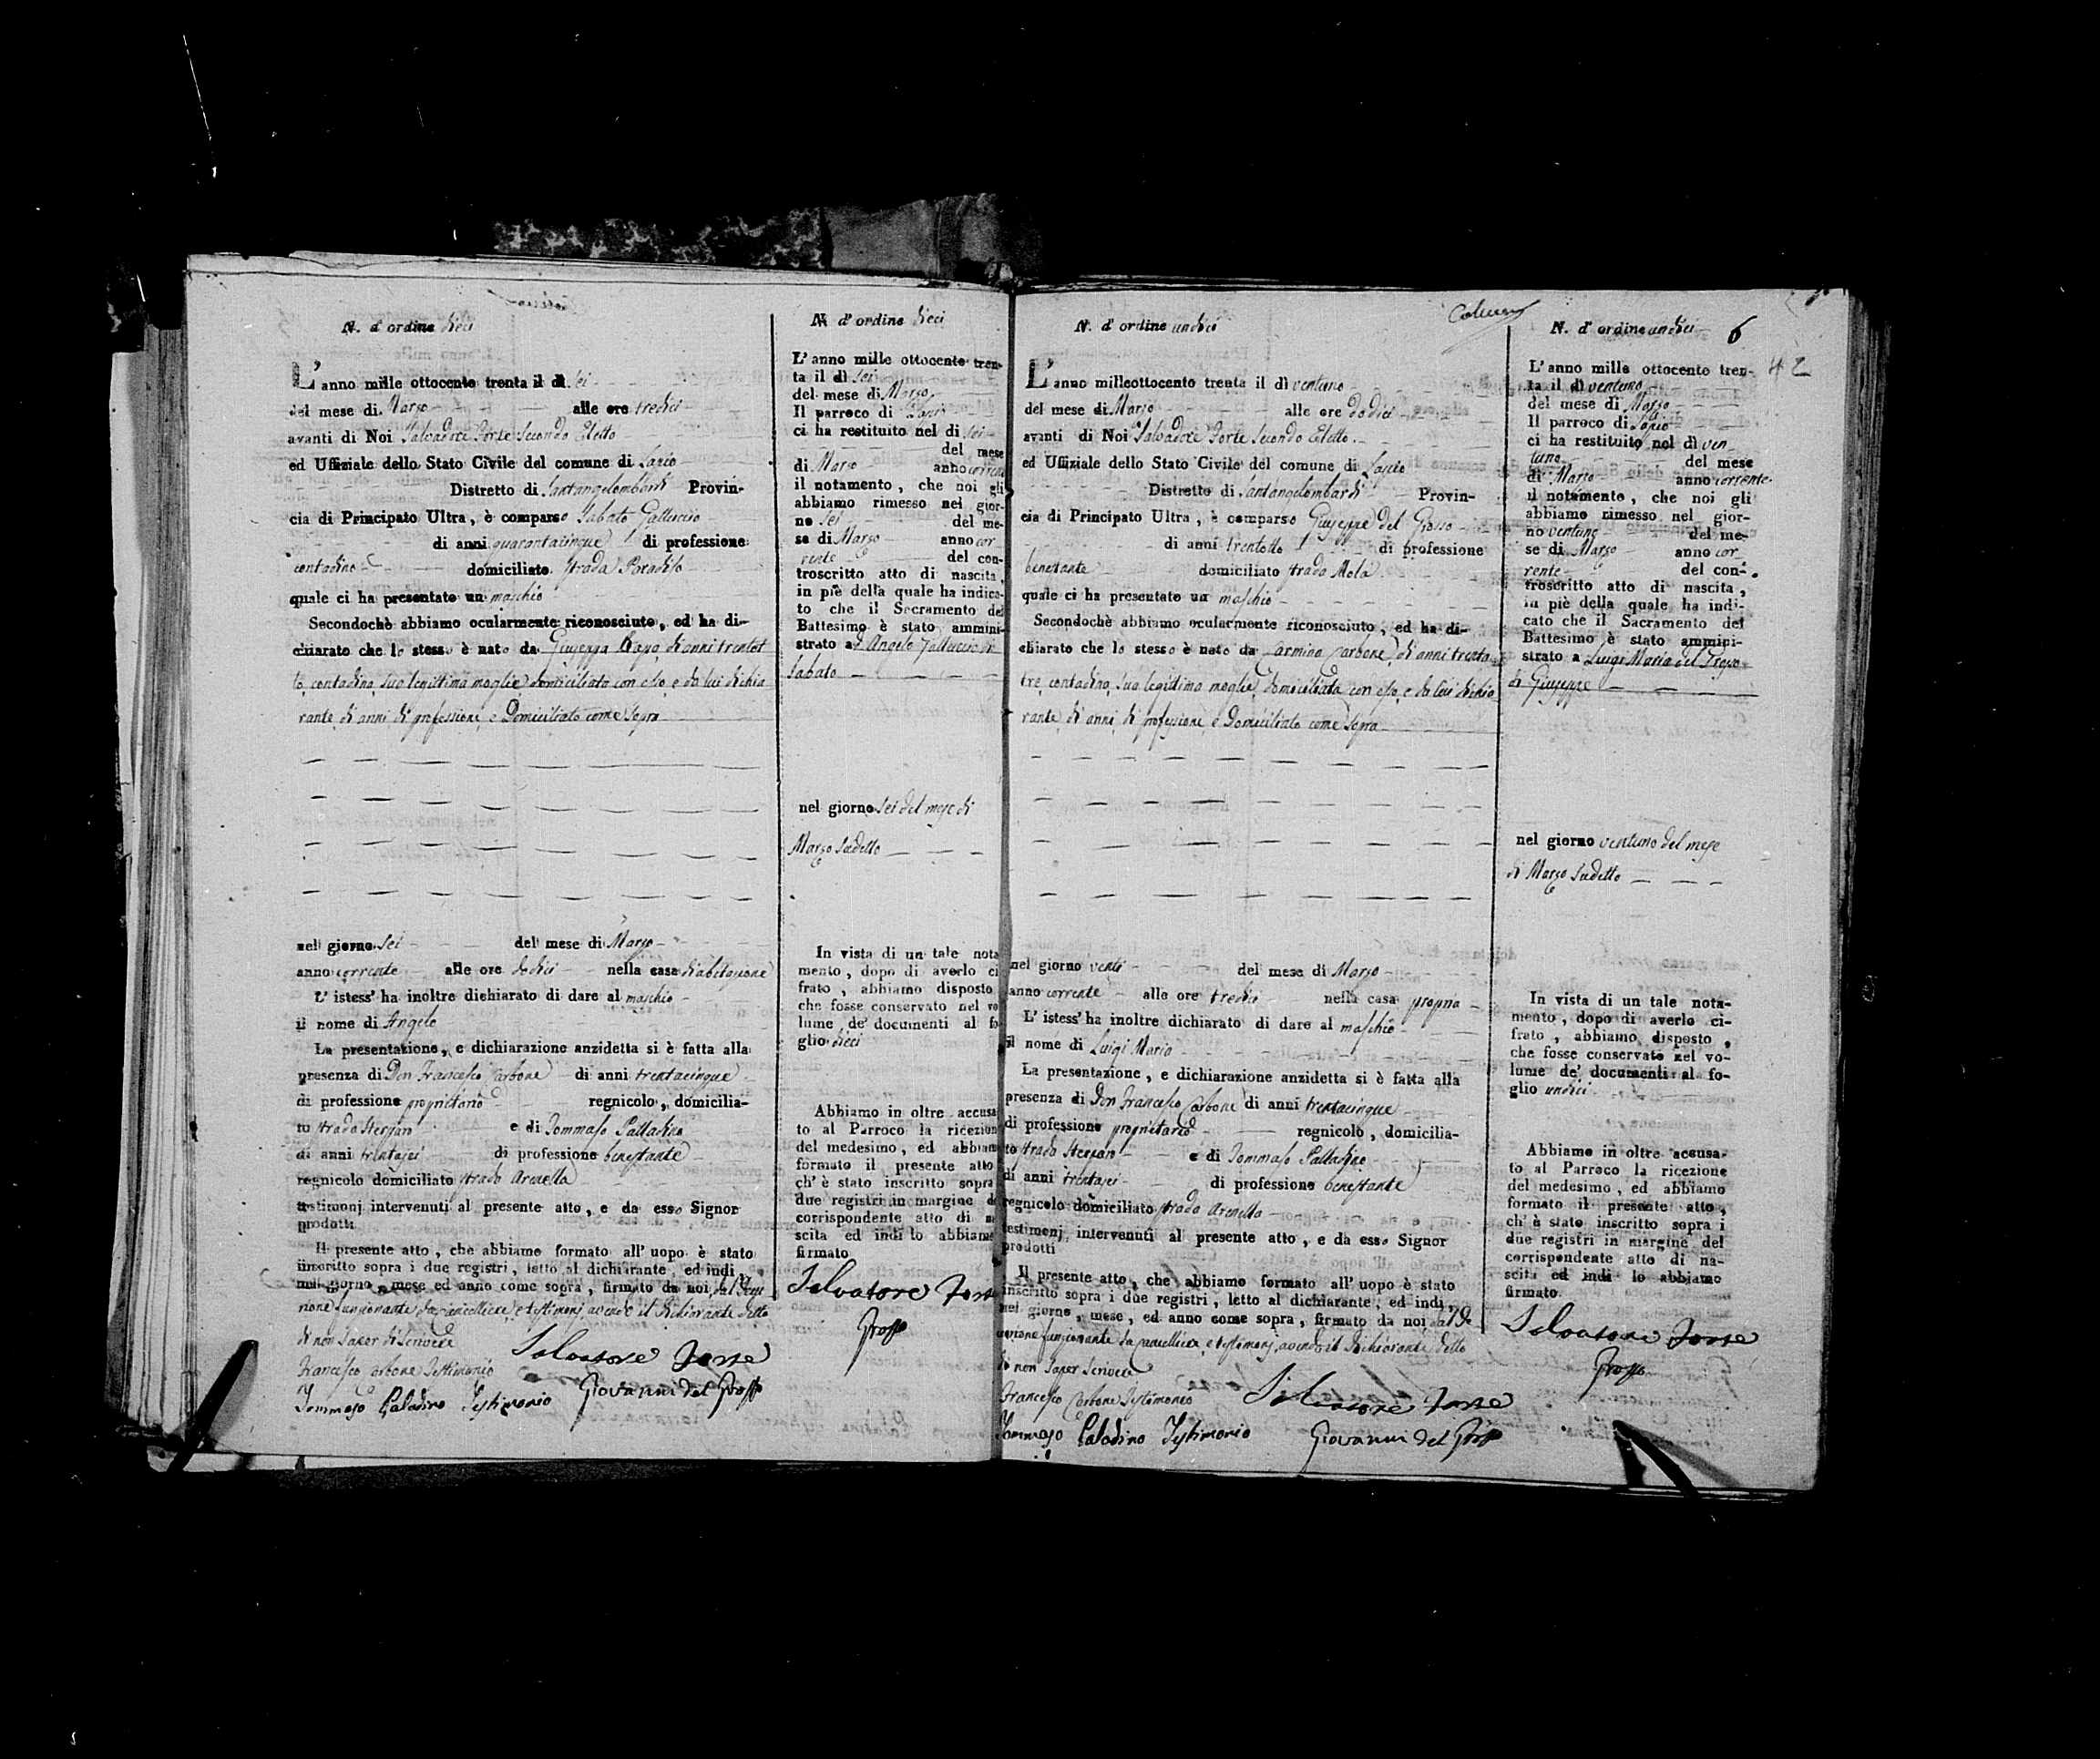 N. d' ordine dieci
L' anno mille ottocento trenta il dì sei
del mese di Marzo alle ore tredici
avanti di Noi Salvadore Forte Secondo Eletto
ed Uffiziale dello Stato Civile del comune di Lapio
Distretto di Santangelombardi Provin-
cia di Principato Ultra, è comparso Sabato Galluccio
di anni quarantacinque di professione
contadino domiciliato strada Paradiso
quale ci ha presentato un maschio
Secondochè abbiamo ocularmente riconosciuto, ed ha di-
chiarato che lo stesso è nato da Giuseppa di anni trentot
to contadina, sua legittima moglie domiciliata con esso, e da lui dichia
rante di anni di professione, e Domiciliato come sopra
nel giorno sei del mese di Marzo
anno corrente alle ore dodici nella casa d'abitazione
L' istess' ha inoltre dichiarato di dare al maschio
il nome di Angelo
La presentazione, e dichiarazione anzidetta si è fatta alla
presenza di Don Francesco Carbone di anni trentacinque
di professione proprietario regnicolo, domicilia-
to strada e di Tommaso Palladino
di anni trentasei di professione benestante
regnicolo domiciliato strada Arenella
testimonj intervenuti al presente atto, e da esso Signor
prodotti
Il presente atto, che abbiamo formato all' uopo è stato
inscritto sopra i due registri, letto al dichiarante, ed indi,
nel giorno, mese ed anno come sopra, firmato da noi, dal
funzionante da Cancelliere, e testimonj, avendo il dichiarante detto
di non saper di scrivere
Francesco Carbone Testimonio
Salvatore Forte
Tommaso Paladino Testimonio Giovanni del Grosso
N. d' ordine dieci
L' anno mille ottocento tren-
ta il dì sei
del mese di Marzo
Il parroco di Lapio
ci ha restituito nel dì sei
del mese
di Marzo anno corrente
il notamento, che noi gli
abbiamo rimesso nel gior-
no sei del me-
se di Marzo anno cor
rente del con-
troscritto atto di nascita,
in piè della quale ha indica-
to che il Sacramento del
Battesimo è stato ammini-
strato ad Angelo Galluccio di
Sabato
nel giorno sei del mese di
Marzo sudetto
In vista di un tale nota
mento, dopo di averlo ci
frato, abbiamo disposto
che fosse conservato nel vo
lume de' documenti al fo
glio dieci
Abbiamo in oltre accusa
to al Parroco la ricezion
del medesimo, ed abbiam
formato il presente atto
ch' è stato inscritto sopra
due registri in margine de
corrispondente atto di na
scita ed indi lo abbiamo
firmato
Salvatore Forte
Grosso
N. d' ordine undici
L' anno milleottocento trenta il dì ventuno
del mese di Marzo alle ore dodici
avanti di Noi Salvadore Forte Secondo Eletto
ed Uffiziale dello Stato Civile del comune di Lapio
Distretto di Santangelombardi Provin-
cia di Principato Ultra, è comparso Giuseppe del Grosso
di anni trentotto di professione
benestante domiciliato strada Mola
quale ci ha presentato un maschio
Secondochè abbiamo ocularmente riconosciuto, ed ha di-
chiarato che lo stesso è nato da Carmina Carbone, di anni trenta
tre, contadina, sua legittima moglie, domiciliata con esso, e da lui dichia
rante, di anni di professione, e Domiciliato come sopra
nel giorno venti del mese di Marzo
anno corrente alle ore tredici nella casa propria
L' istess' ha inoltre dichiarato di dare al maschio
il nome di Luigi Maria
La presentazione, e dichiarazione anzidetta si è fatta alla
presenza di Don Francesco Carbone di anni trentacinque
di professione proprietario regnicolo, domicilia-
to strada e di Tommaso Palladino
di anni trentasei di professione benestante
regnicolo domiciliato strada Arenella
testimonj intervenuti al presente atto, e da esso Signor
prodotti
Il presente atto, che abbiamo formato all' uopo è stato
inscritto sopra i due registri, letto al dichiarante, ed indi,
nel giorno, mese, ed anno come sopra, firmato da noi dal De
curione funzionante da Cancelliere, e testimonj, avendo il dichiarante detto
di non saper scrivere
Francesco Carbone Testimonio
Salvatore Forte
Tommaso Paladino Testimonio Giovanni del Grosso
N. d' ordine undici
6
42
L' anno mille ottocento tren-
ta il dì ventuno
del mese di Marzo
Il parroco di Lapio
ci ha restituito nel dì ven
tuno del mese
di Marzo anno corrente
il notamento, che noi gli
abbiamo rimesso nel gior-
no ventuno del me-
se di Marzo anno cor
rente del con-
troscritto atto di nascita,
in piè della quale ha indi-
cato che il Sacramento del
Battesimo è stato ammini-
strato a Luigi Maria del Grosso
di Giuseppe
nel giorno ventuno del mese
di Marzo sudetto
In vista di un tale nota-
mento, dopo di averlo ci-
frato, abbiamo disposto,
che fosse conservato nel vo-
lume de' documenti al fo-
glio undici
Abbiamo in oltre accusa-
to al Parroco la ricezione
del medesimo, ed abbiamo
formato il presente atto,
ch' è stato inscritto sopra i
due registri in margine del
corrispondente atto di na-
scita ed indi lo abbiamo
firmato
Salvatore Forte
Grosso